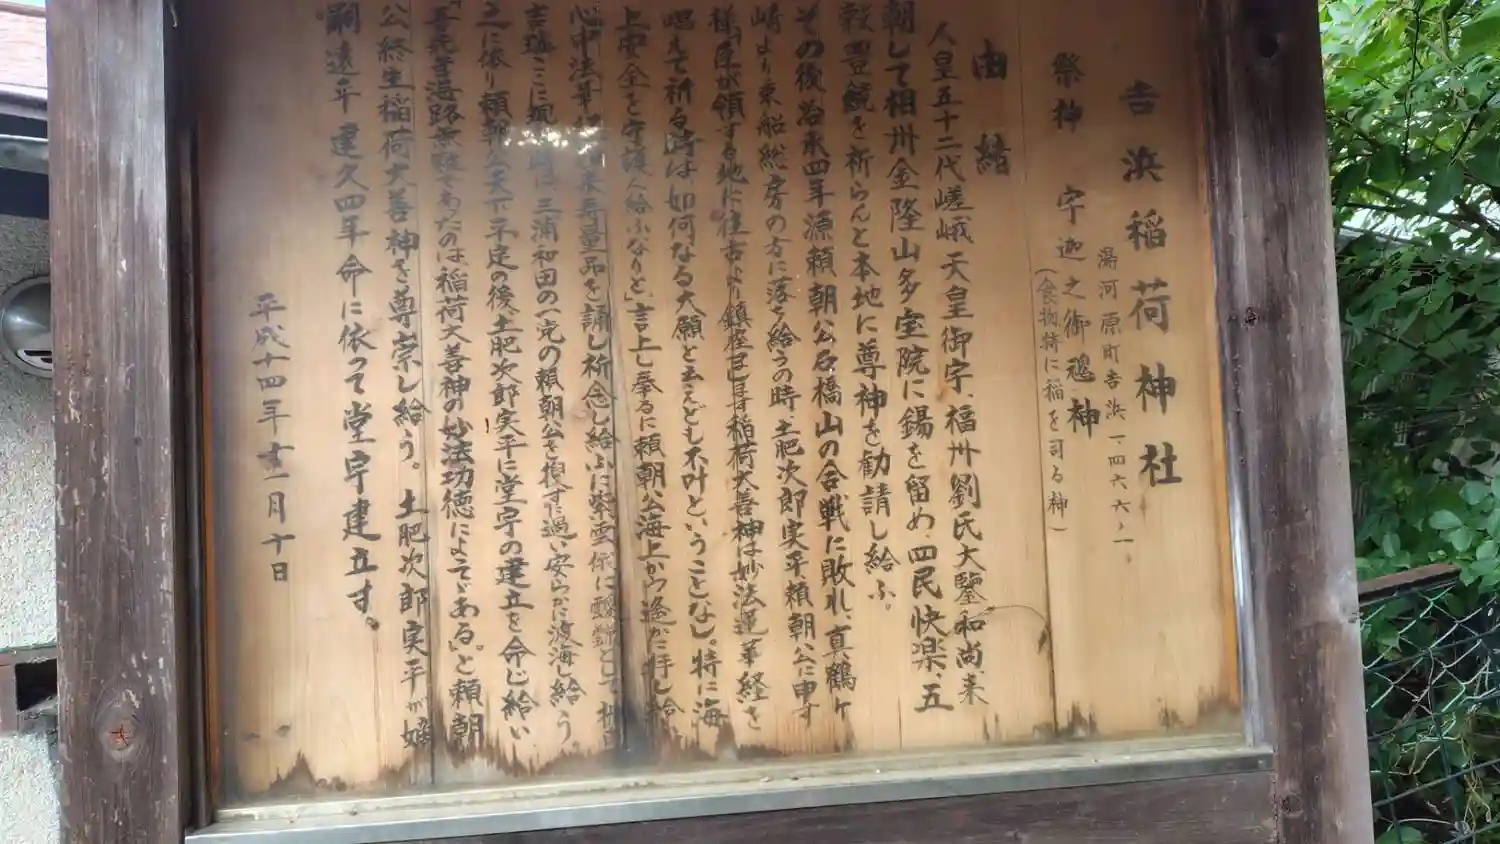 吉浜稲荷神社
湯河原町吉浜一、四六六ノ一、
祭神 宇迦之御魂神
(食物特に稲を司る神)
由緒
人皇五十二代嵯峨天皇御宇、福州劉氏大鑒和尚、来
朝して相州金隆山多宝院に錫を留め、四民快楽、五
穀豊饒を祈らんと本地に尊神を勧請し給ふ。
その後治承四年源頼朝公石橋山の合戦に敗れ、真鶴ヶ
崎より乗船総房の方に落ち給うの時土肥次郎実平頼朝公に申す
様「臣が領する地に往古より鎮座まします稲荷大善神は妙法蓮華経を
唱えて祈る時は、如何なる大願と云えども不叶ということなし。特に海
上安全を守護し給ふなりと」言上し奉るに頼朝公海上から遥かに拝し給
心中法華経如来寿量品を誦し祈念し給ふに紫雲
吉瑞ここに現時に三浦和田の一党の頼朝公を捜すに遇い安らかに渡海し給う。
之に依り頼朝公天下平定の後、土肥次郎実平に堂宇の建立を命じ給い、
「吾先年海路無難であったのは稲荷大善神の妙法功徳によってである。」と頼朝
公終生稲荷大善神を尊崇し給う。土肥次郎実平が嫡
嗣遠平建久四年命に依って堂宇建立す。
平成十四年十二月十日